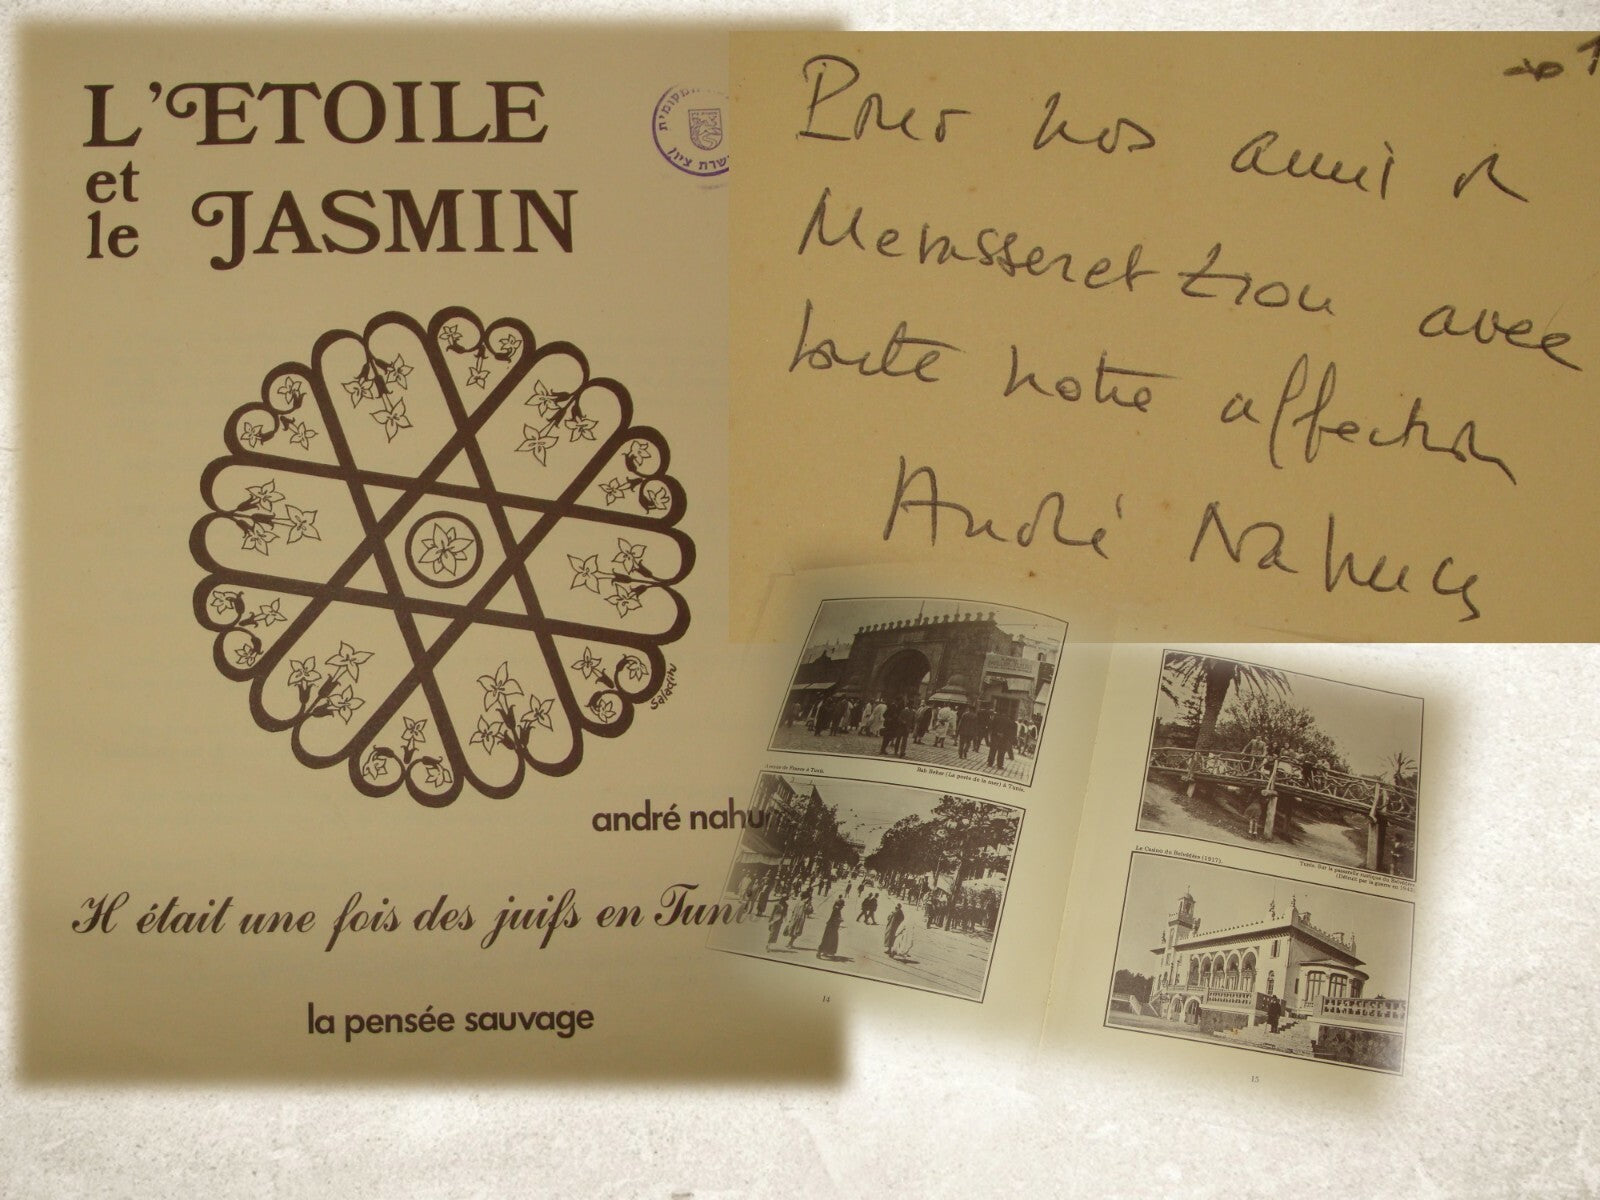 L'ETOILE
et
le JASMIN
Saladin
andré nahu
Il était une fois des juifs en Tuni
la pensée sauvage
שרת ציון
Pour nos amis de
Mevasseret Zion avec
toute notre affection
André Nahum
Avenue de France à Tunis.
Bab Behar (La porte de la mer) à Tunis.
14
Le Casino du Belvédère (1917).
Tunis. Sur la passerelle rustique du Belvédère
(Détruit par la guerre en 1942)
15